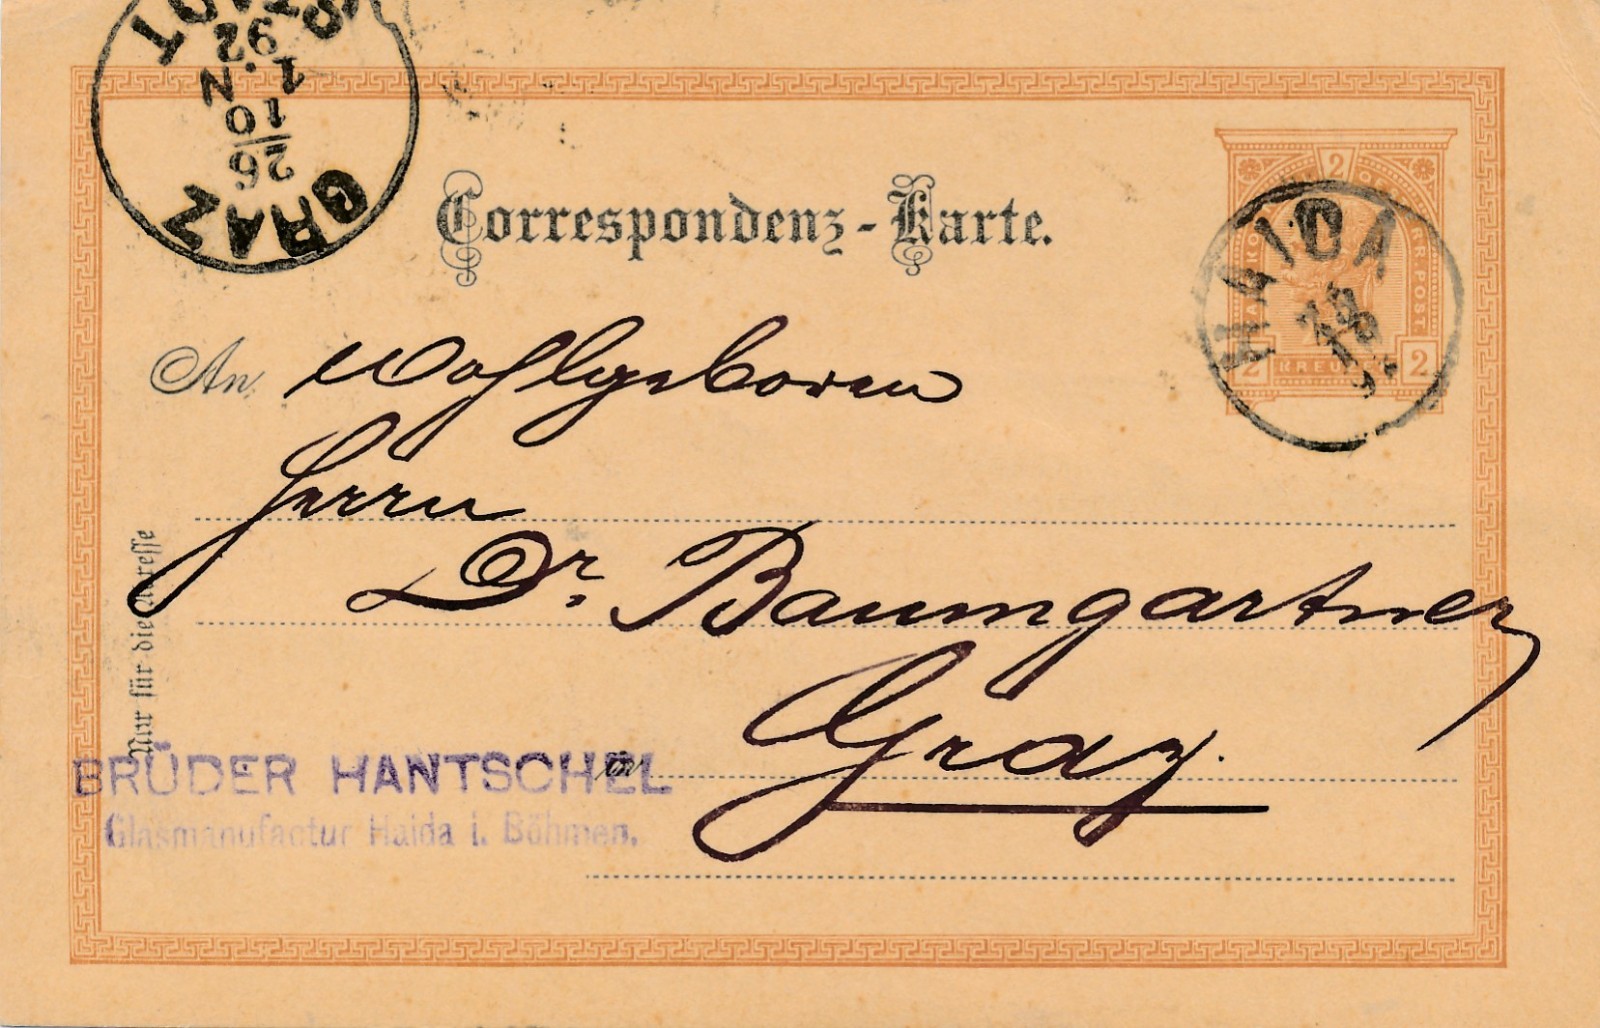 GRAZ STADT
26
10
1.N
92
Correspondenz-Karte.
2
KAIS. KÖN. OESTERR. POST
2 KREUZER 2
HAIDA
An Wohlgeboren
Herrn
Dr. Baumgartner
in Graz.
Nur für die Adresse
BRÜDER HANTSCHEL
Glasmanufactur Haida i. Böhmen.